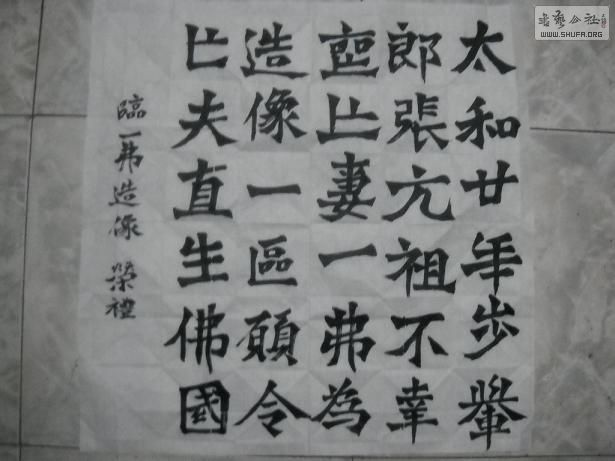 太和廿年步轝
郎張元祖不幸
喪亡妻一弗為
造像一區願令
亡夫直生佛國
臨一弗造像 榮禮
書藝公社
WWW.SHUFA.ORG